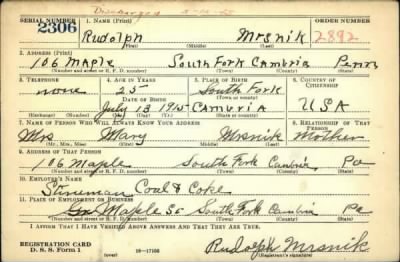 Discharged
SERIAL NUMBER 1. NAME (Print) ORDER NUMBER
2306 Rudolph Mrsnik 2892
(First) (Middle) (Last)
2. ADDRESS (Print)
106 Maple South Fork Cambria Penna
(Number and street or R. F. D. number) (Town) (County) (State)
3. TELEPHONE 4. AGE IN YEARS 5. PLACE OF BIRTH 6. COUNTRY OF CITIZENSHIP
none 25 South Fork
DATE OF BIRTH (Town or county)
July 13 1915 Cambria USA
(Exchange) (Number) (Mo.) (Day) (Yr.) (State or country)
7. NAME OF PERSON WHO WILL ALWAYS KNOW YOUR ADDRESS 8. RELATIONSHIP OF THAT PERSON
Mrs Mary Mrsnik Mother
(Mr., Mrs., Miss) (First) (Middle) (Last)
9. ADDRESS OF THAT PERSON
106 Maple South Fork Cambria Pa
(Number and street or R. F. D. number) (Town) (County) (State)
10. EMPLOYER'S NAME
Stineman Coal & Coke
11. PLACE OF EMPLOYMENT OR BUSINESS
Maple St South Fork Cambria Pa
(Number and street or R. F. D. number) (Town) (County) (State)
I AFFIRM THAT I HAVE VERIFIED ABOVE ANSWERS AND THAT THEY ARE TRUE.
REGISTRATION CARD
D. S. S. Form 1 (over) 16-17105 Rudolph Mrsnik
(Registrant's signature)